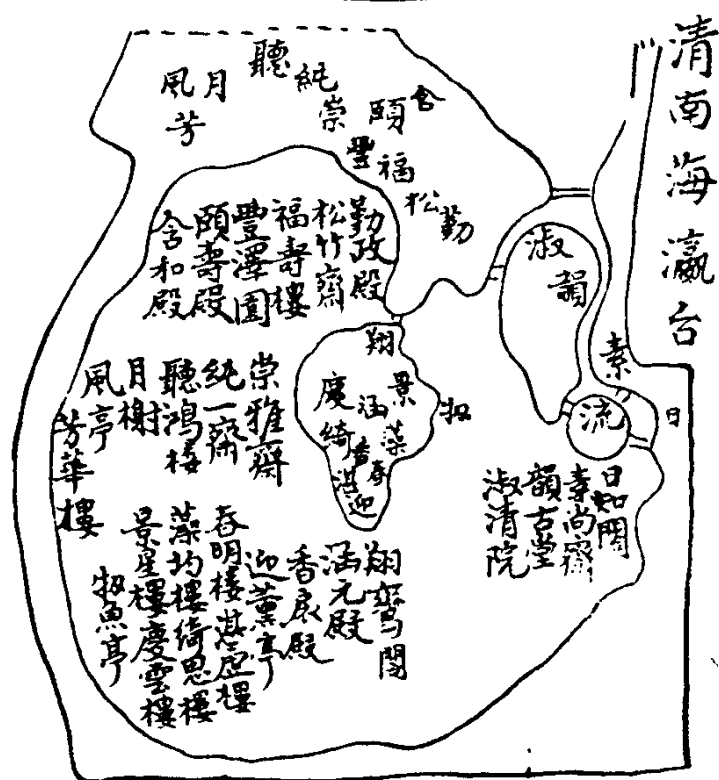 清南海瀛台
含
頤
福
松
勤
純
崇
豐
聽
月
風
芳
勤政殿
松竹齋
福壽樓
豐澤園
頤壽殿
含和殿
淑
韻
素
流
日
翔
景
涵
藻
慶
綺
香
春
湛
迎
崇雅齋
純一齋
聽鴻樓
月榭
風亭
芳華樓
日知閣
素尚齋
韻古堂
淑清院
翔鸞閣
涵元殿
香扆殿
迎薰亭
春明樓湛虛樓
藻韵樓綺思樓
景星樓慶雲樓
魚亭